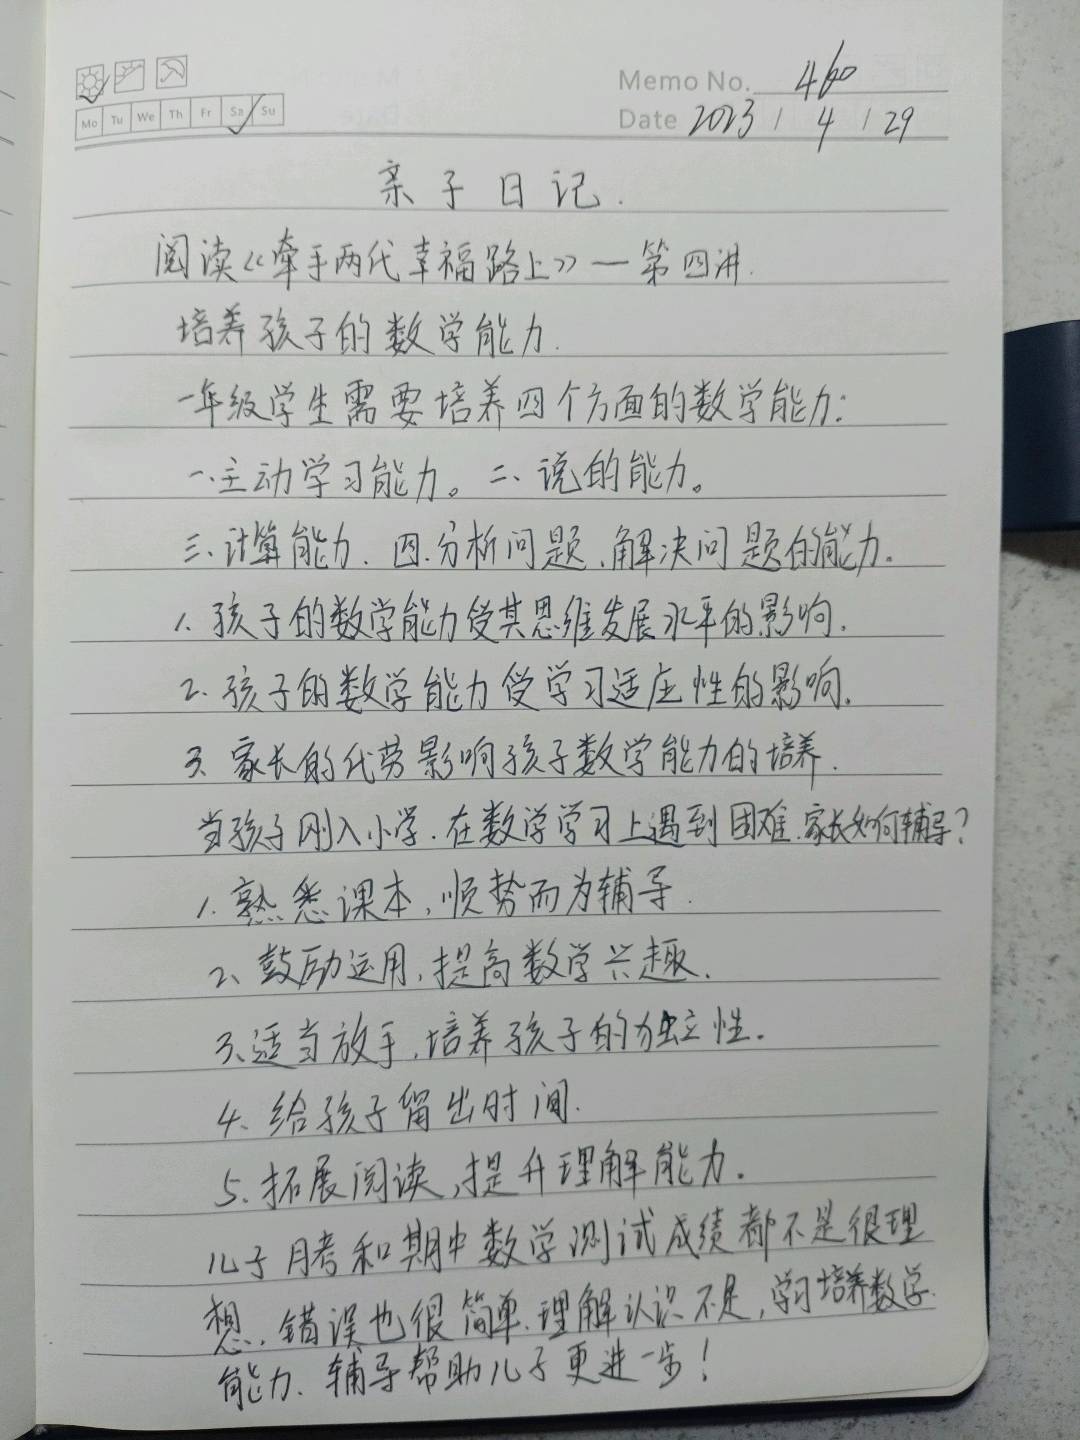 Memo No. 460
Mo Tu We Th Fr Sa Su
Date 2023 / 4 / 29
亲子日记.
阅读《牵手两代幸福路上》—第四讲.
培养孩子的数学能力.
一年级学生需要培养四个方面的数学能力:
一、主动学习能力。二、说的能力。
三、计算能力.四.分析问题、解决问题的能力。
1. 孩子的数学能力受其思维发展水平的影响.
2. 孩子的数学能力受学习适应性的影响.
3. 家长的代劳影响孩子数学能力的培养.
当孩子刚入小学.在数学学习上遇到困难.家长如何辅导?
1. 熟悉课本,顺势而为辅导.
2、鼓励运用,提高数学兴趣.
3、适当放手,培养孩子的独立性.
4、给孩子留出时间.
5、拓展阅读,提升理解能力.
儿子月考和期中数学测试成绩都不是很理
想.错误也很简单.理解认识不足,学习培养数学
能力、辅导帮助儿子更进一步!